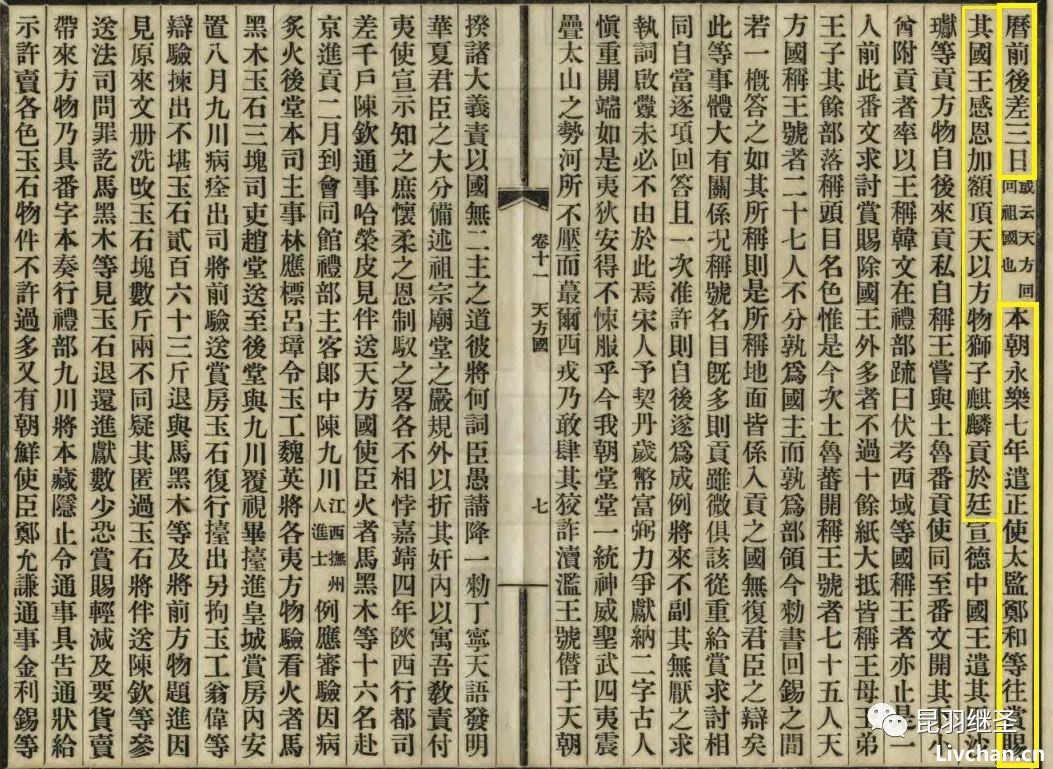 曆前後差三日或云天方回回祖國也本朝永樂七年遣正使太監鄭和等往賞賜
其國王感恩加額頂天以方物獅子麒麟貢於廷宣德中國王遣其沙
瓛等貢方物自後來貢私自稱王嘗與土魯番貢使同至番文開其小
酋附貢者率以王稱韓文在禮部疏曰伏考西域等國稱王者亦止是一
人前此番文求討賞賜除國王外多者不過十餘紙大抵皆稱王母王弟
王子其餘部落稱頭目名色惟是今次土魯蕃開稱王號者七十五人天
方國稱王號者二十七人不分孰為國主而孰為部領今勑書回錫之間
若一概答之如其所稱則是所稱地面皆係入貢之國無復君臣之辯矣
此等事體大有關係况稱號名目既多則貢雖微俱該從重給賞求討相
同自當逐項回答且一次准許則自後遂為成例將來不副其無厭之求
執詞啟釁未必不由於此焉宋人予契丹歲幣富弼力爭獻納二字古人
慎重開端如是夷狄安得不悚服乎今我朝堂堂一統神威聖武四夷震
疊太山之勢河所不壓而蕞爾西戎乃敢肆其狡詐瀆濫王號僭于天朝
卷十一 天方國 七
揆諸大義責以國無二主之道彼將何詞臣愚請降一勑丁寧天語發明
華夏君臣之大分備述祖宗廟堂之嚴規外以折其奸內以寓吾教責付
夷使宣示知之庶懷柔之恩制馭之畧各不相悖嘉靖四年陝西行都司
差千戶陳欽通事哈榮皮見伴送天方國使臣火者馬黑木等十六名赴
京進貢二月到會同館禮部主客郎中陳九川江西撫州人進士例應審驗因病
炙火後堂本司主事林應標呂璋令玉工魏英將各夷方物驗看火者馬
黑木玉石三塊司吏趙堂送至後堂與九川覆視畢擡進皇城賞房內安
置八月九川病痊出司將前驗送賞房玉石復行擡出另拘玉工翁偉等
辯驗揀出不堪玉石貳百六十三斤退與馬黑木等及將前方物題進因
見原來文册洗改玉石塊數斤兩不同疑其匿過玉石將伴送陳欽等參
送法司問罪訖馬黑木等見玉石退還進獻數少恐賞賜輕減及要貨賣
帶來方物乃具番字本奏行禮部九川將本藏隱止令通事具告通狀給
示許賣各色玉石物件不許過多又有朝鮮使臣鄭允謙通事金利錫等
昆羽继圣
Livchan.cn